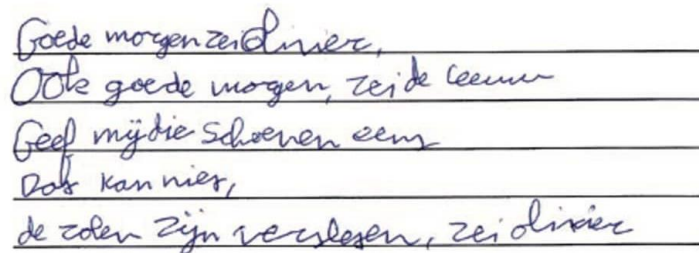 Goede morgen zei Olivier,
Ook goede morgen, zei de leeuw
Geef mij die schoenen eens
Dat kan niet,
de zolen zijn versleten, zei olivier